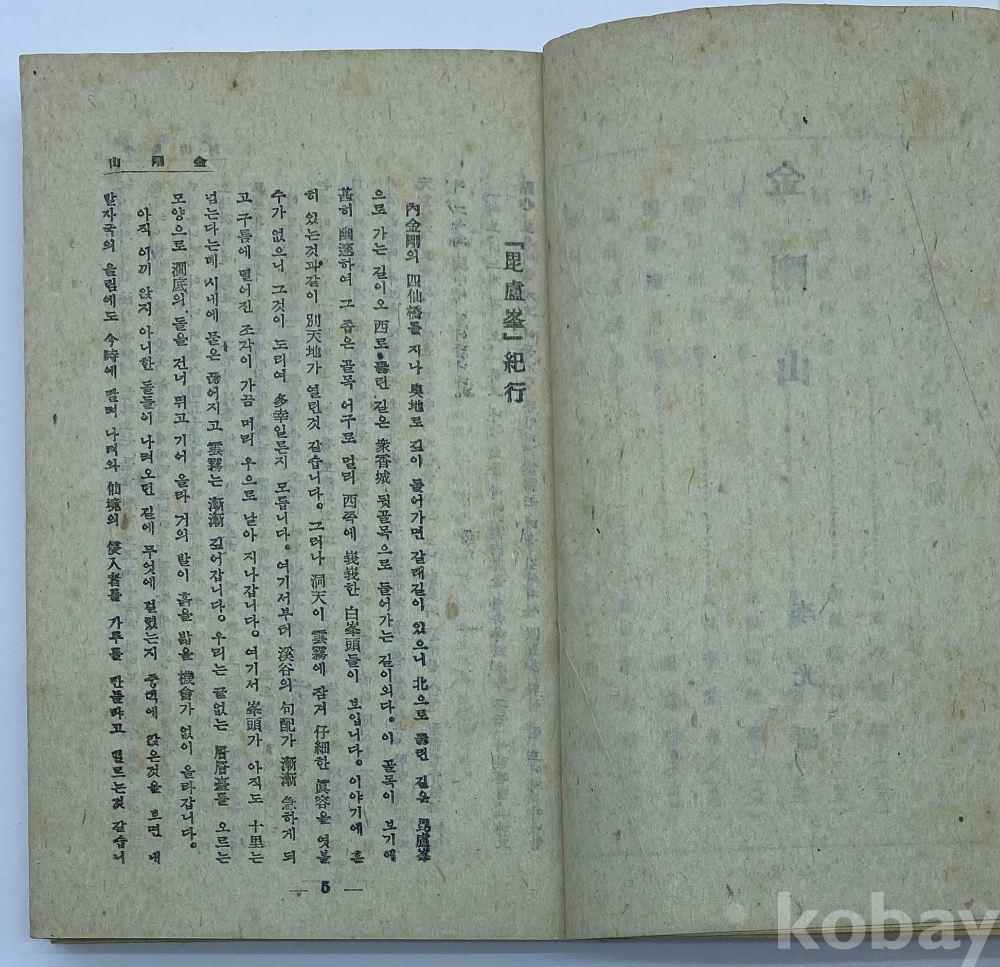 金剛山
「毘盧峯」紀行
內金剛의 四仙橋를 지나 奧地로 깊이 들어가면 갈래길이 있으니 北으로 뚫린 길은 毘盧峯
으로 가는 길이오 西로 뚫린 길은 衆香城 뒷골목으로 들어가는 길이외다. 이 골목이 보기에
甚히 幽邃하여 그 좁은 골목 어구로 멀리 西쪽에 峩峩한 白峯頭들이 보입니다. 이야기에 흔
히 있는것과같이 別天地가 열린것 같습니다. 그러나 洞天이 雲霧에 잠겨 仔細한 眞容을 엿볼
수가 없으니 그것이 도리여 多幸일른지 모릅니다. 여기서부터 溪谷의 句配가 漸漸 急하게 되
고 구름에 떨어진 조각이 가끔 머리 우으로 날아 지나갑니다. 여기서 峯頭가 아직도 十里는
넘는다는데 시내에 물은 끊어지고 雲霧는 漸漸 깊어갑니다. 우리는 끝없는 層層臺를 오르는
모양으로 澗底의 돌을 건너 뛰고 기어 올라 거의 발이 흙을 밟을 機會가 없이 올라갑니다.
아직 이끼 앉지 아니한 돌들이 나려오던 길에 무엇에 걸렸는지 중턱에 앉은것을 보면 내
발자국의 울림에도 今時에 굴러 나려와 仙境의 侵入者를 가루를 만들랴고 벼르는것 같습니
— 5 —
kobay